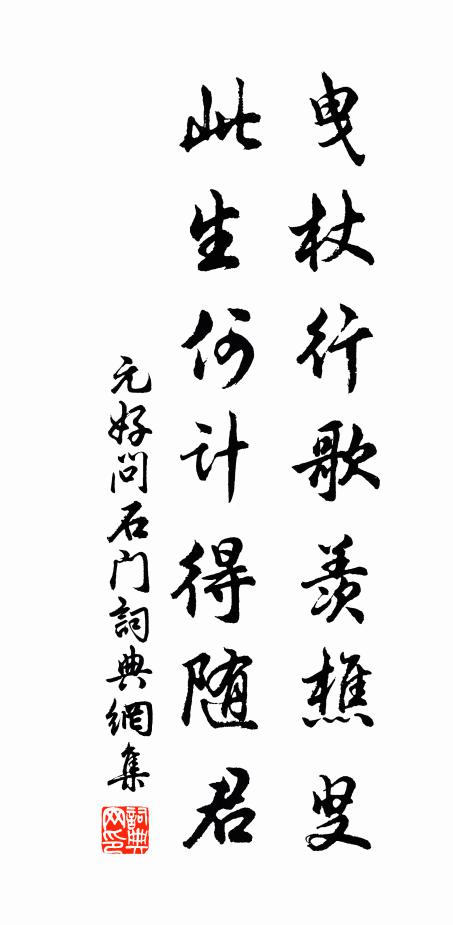 曳杖行歌羨樵叟
此生何计得随君
元好问石门詞典網集
詞典网印